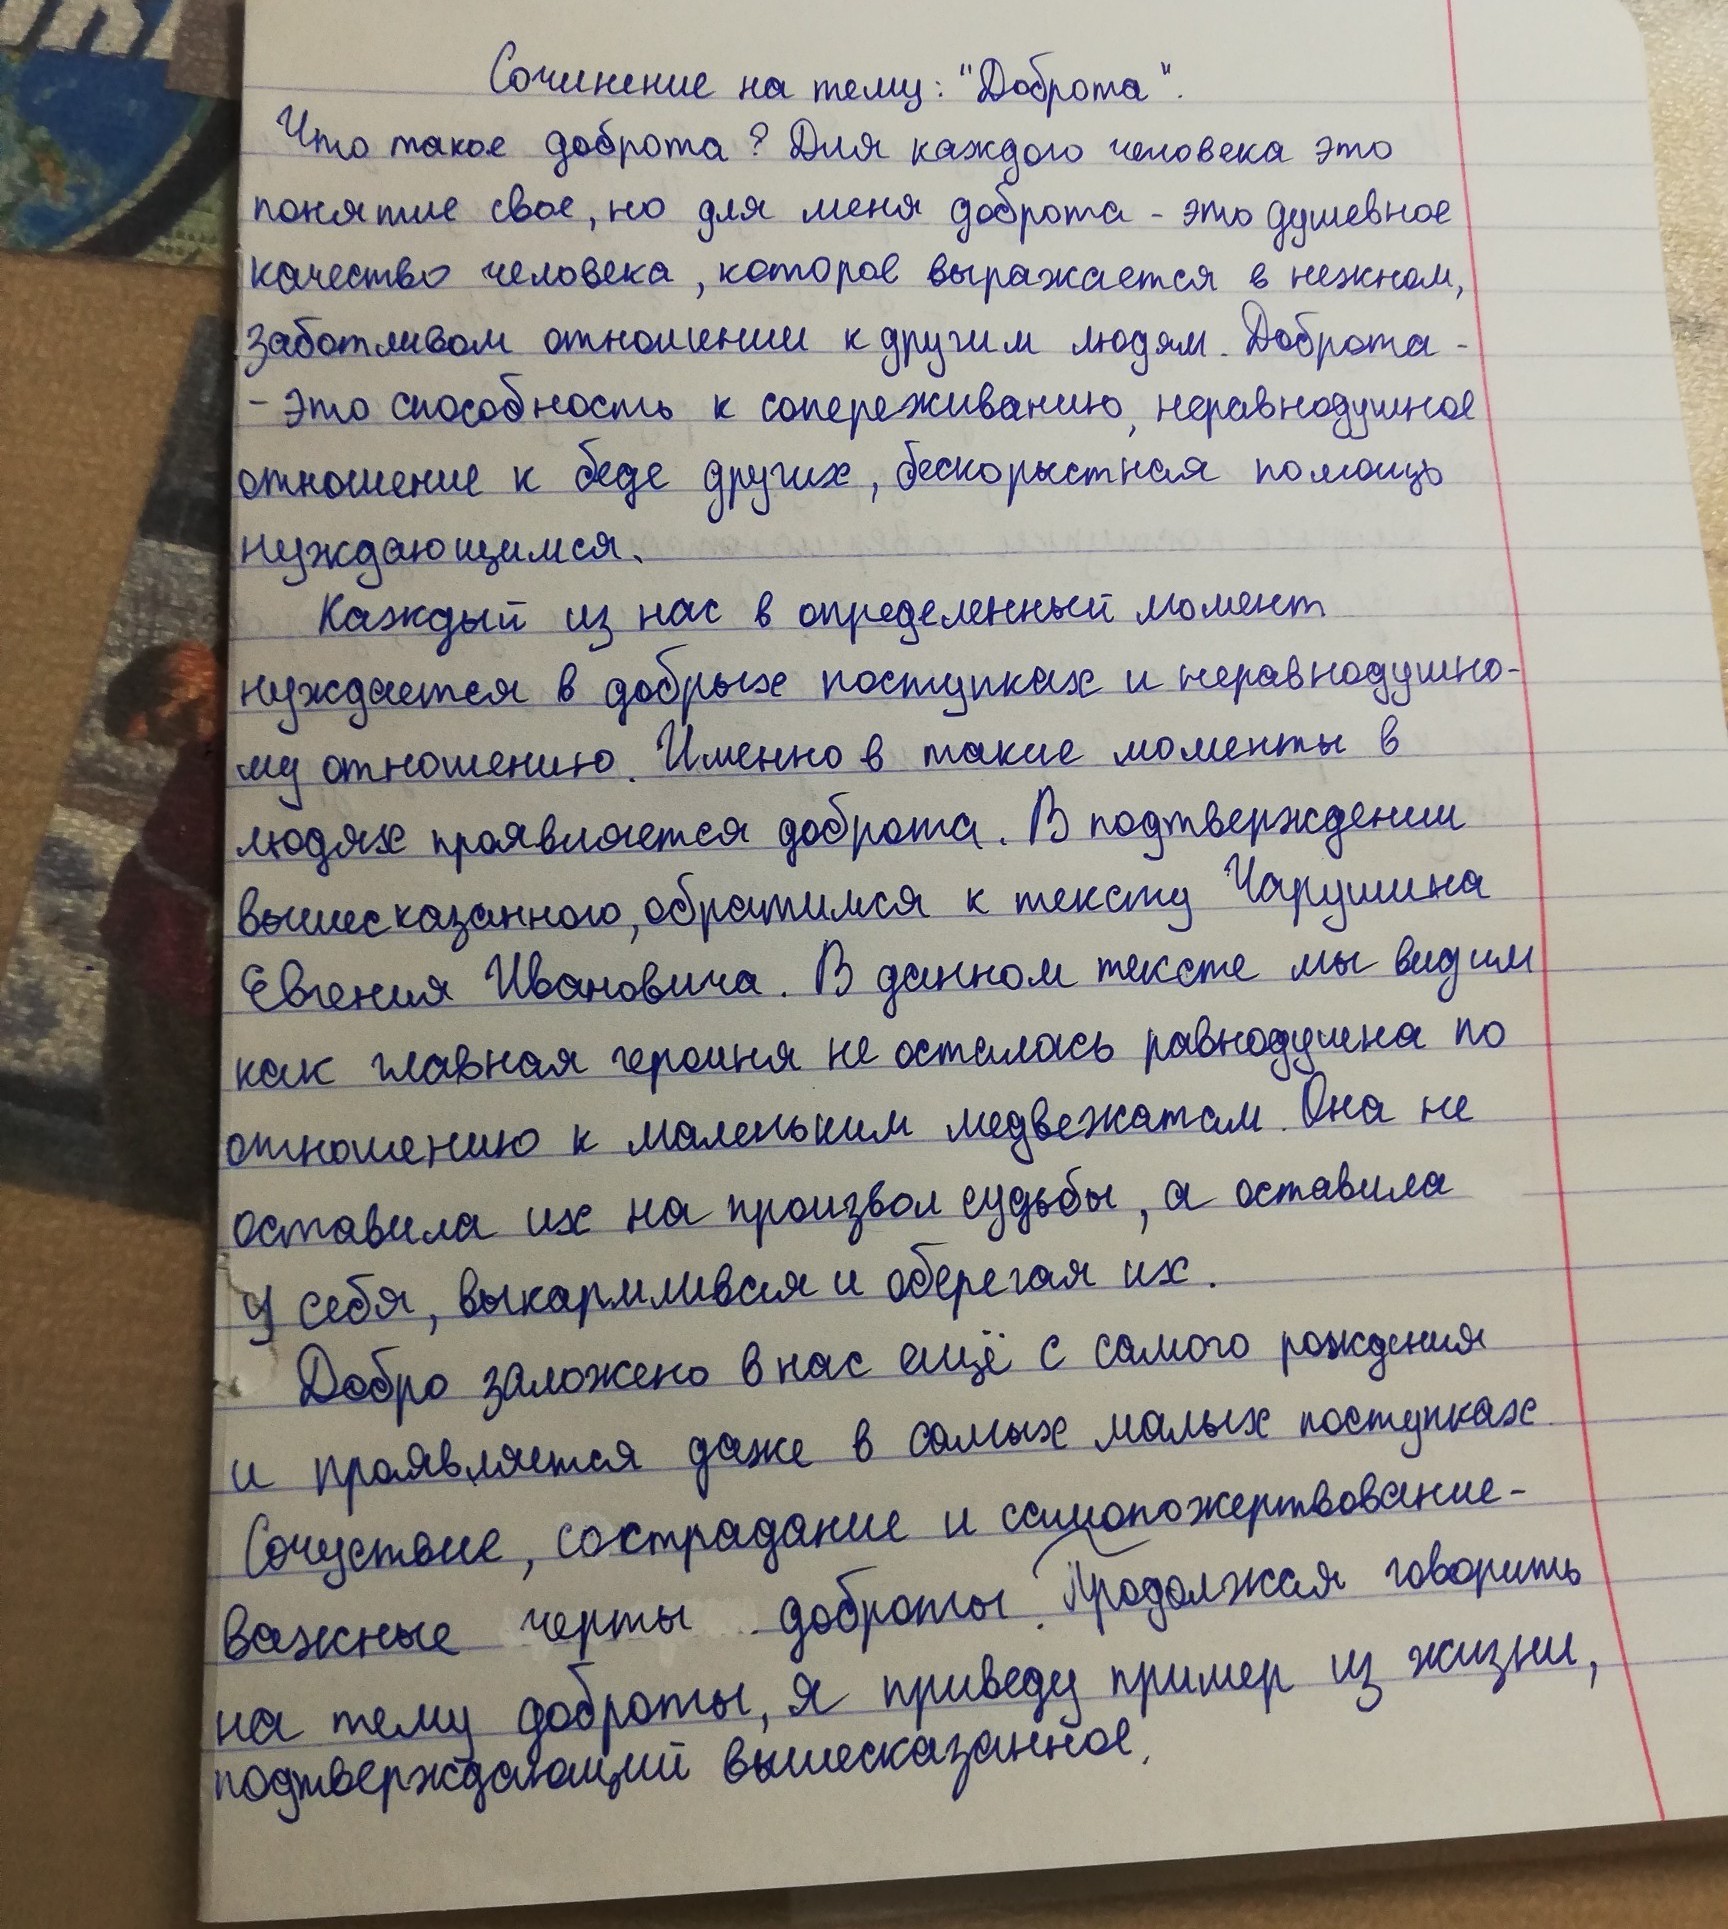 Сочинение на тему: "Доброта".
Что такое доброта? Для каждого человека это
понятие свое, но для меня доброта - это душевное
качество человека, которое выражается в нежном,
заботливом отношении к другим людям. Доброта -
- это способность к сопереживанию, неравнодушное
отношение к беде других, бескорыстная помощь
нуждающимся.
Каждый из нас в определенный момент
нуждается в добрых поступках и неравнодушно-
му отношению. Именно в такие моменты в
людях проявляется доброта. В подтверждении
вышесказанного, обратимся к тексту Чарушина
Евгения Ивановича. В данном тексте мы видим
как главная героиня не осталась равнодушна по
отношению к маленьким медвежатам. Она не
оставила их на произвол судьбы, а оставила
у себя, выкармливая и оберегая их.
Добро заложено в нас ещё с самого рождения
и проявляется даже в самых малых поступках.
Сочуствие, сострадание и самопожертвование -
важные черты доброты. Продолжая говорить
на тему доброты, я приведу пример из жизни,
подтверждающий вышесказанное.